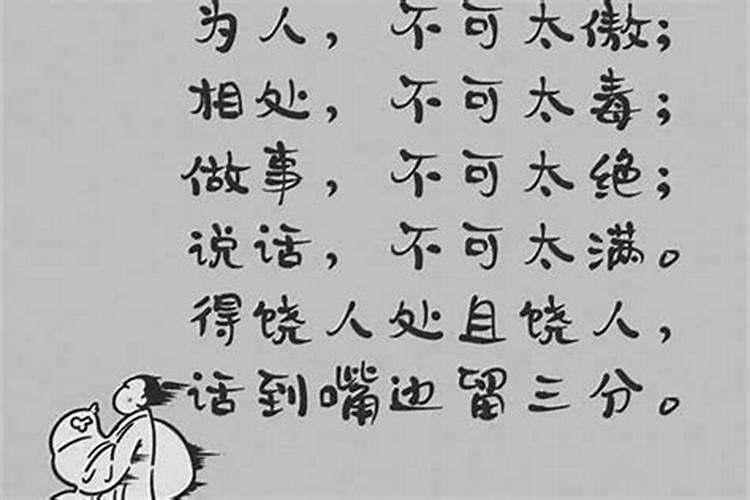 为人，不可太傲；
相处，不可太毒；
做事，不可太绝；
说话，不可太满。
得饶人处且饶人，
话到嘴边留三分。